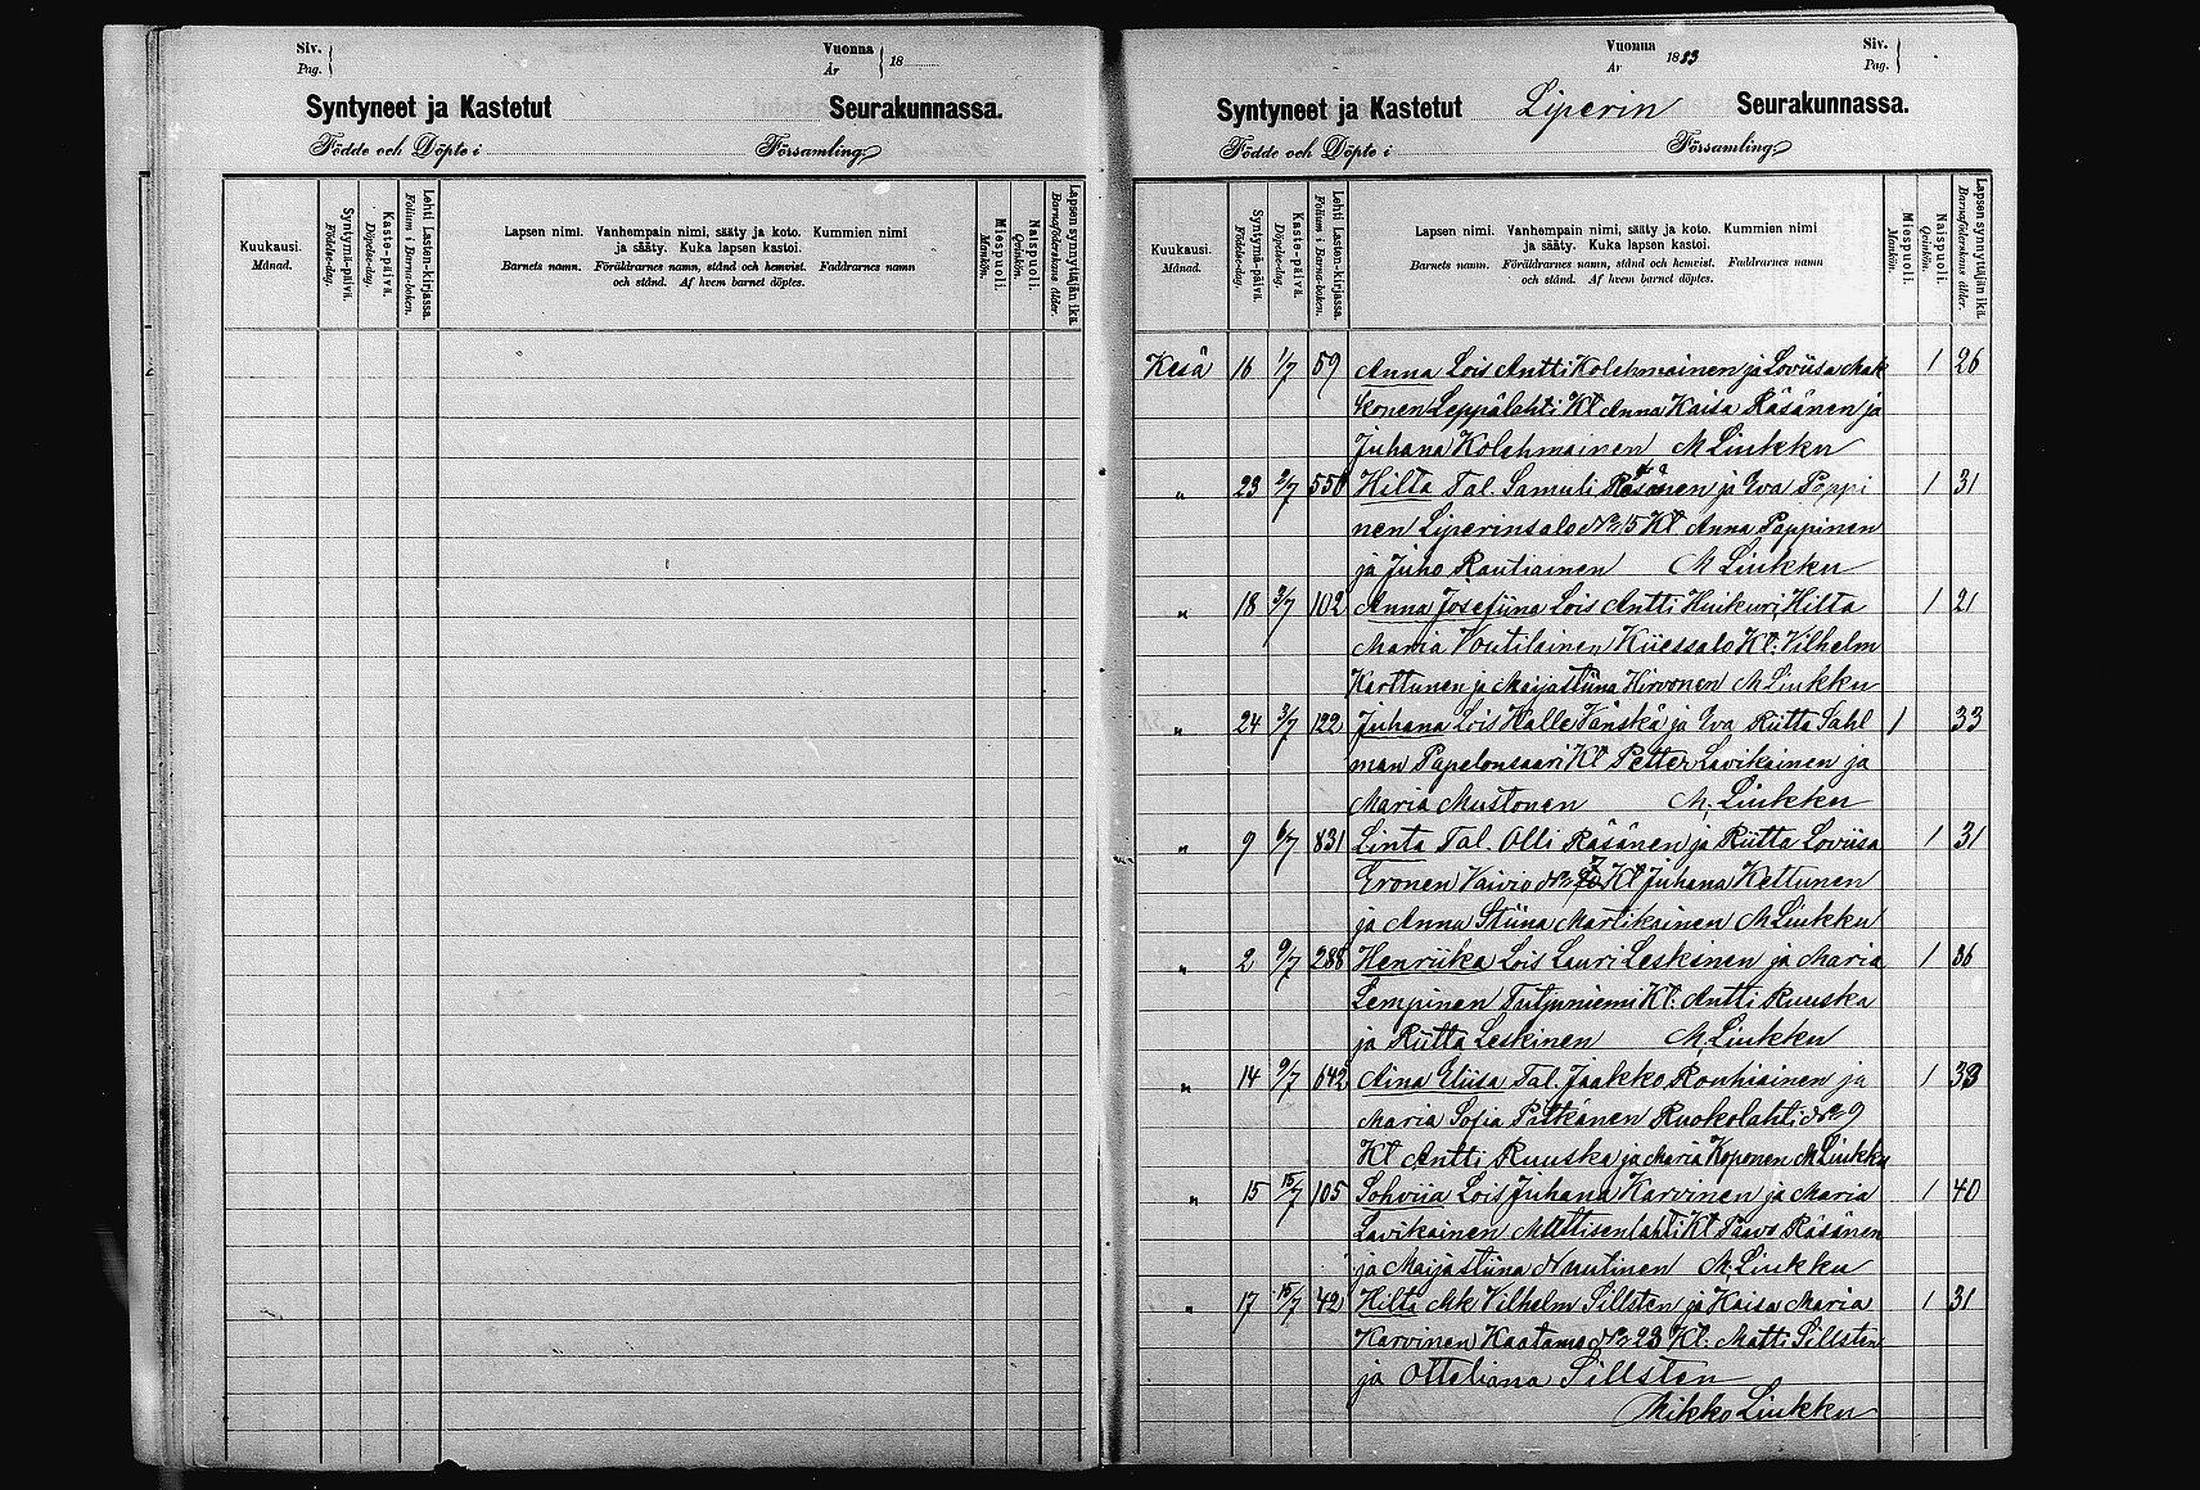 Siv.
Pag.
Vuonna
År
18
Syntyneet ja Kastetut Seurakunnassa.
Födde och Döpte i Församling.
Kuukausi.
Månad.
Syntymä-päivä.
Födelse-dag.
Kaste-päivä.
Döpelse-dag.
Lehti Lasten-kirjassa.
Folium i Barna-boken.
Lapsen nimi. Vanhempain nimi, sääty ja koto. Kummien nimi
ja sääty. Kuka lapsen kastoi.
Barnets namn. Föräldrarnes namn, stånd och hemvist. Faddrarnes namn
och stånd. Af hvem barnet döptes.
Miespuoli.
Mankön.
Naispuoli.
Qvinkön.
Lapsen synnyttäjän ikä.
Barnaföderskans ålder.
Vuonna
År
1883
Siv.
Pag.
Syntyneet ja Kastetut Liperin Seurakunnassa.
Födde och Döpte i Församling.
Kuukausi.
Månad.
Syntymä-päivä.
Födelse-dag.
Kaste-päivä.
Döpelse-dag.
Lehti Lasten-kirjassa.
Folium i Barna-boken.
Lapsen nimi. Vanhempain nimi, sääty ja koto. Kummien nimi
ja sääty. Kuka lapsen kastoi.
Barnets namn. Föräldrarnes namn, stånd och hemvist. Faddrarnes namn
och stånd. Af hvem barnet döptes.
Miespuoli.
Mankön.
Naispuoli.
Qvinkön.
Lapsen synnyttäjän ikä.
Barnaföderskans ålder.
Kesä 16 1/7 59 Anna Lois Antti Kolehmainen ja Loviisa Mak 1 26
konen Leppälahti Kt Anna Kaisa Räsänen ja
Juhana Kolehmainen M Liukku
" 23 2/7 550 Hilta Tal. Samuli Räsänen ja Eva Poppi 1 31
nen Liperinsalo No 15 Kt Anna Poppinen
ja Juho Rautiainen M Liukku
" 18 3/7 102 Anna Josefiina Lois Antti Huikuri, Hilta 1 21
Maria Voutilainen Kiiessalo Kt: Vilhelm
Karttunen ja Maijastiina Hirvonen M Liukku
" 24 3/7 122 Juhana Lois Kalle Vänskä ja Eva Riitta Sahl 1 33
man Papelonsaari Kt Petter Lavikainen ja
Maria Mustonen M. Liukku
" 9 6/7 831 Linta Tal. Olli Räsänen ja Riitta Loviisa 1 31
Eronen Vaivio No 7 Kt Juhana Kettunen
ja Anna Stiina Martikainen M Liukku
" 2 9/7 288 Henriika Lois Lauri Leskinen ja Maria 1 36
Lempinen Tutjuniemi Kt: Antti Ruuska
ja Riitta Leskinen M. Liukku
" 14 9/7 642 Aina Eliisa Tal. Jaakko Rouhiainen ja 1 33
Maria Sofia Pitkänen Ruokolahti No 9
Kt Antti Ruuska ja Maria Koponen M Liukku
" 15 15/7 105 Sohviia Lois Juhana Karvinen ja Maria 1 40
Lavikainen Mattisenlahti Kt Paavo Räsänen
ja Maijastiina Nuutinen M. Liukku
" 17 15/7 42 Hilta Mk Vilhelm Sillsten ja Kaisa Maria 1 31
Karvinen Kaatamo No 23 Kt: Matti Sillsten
ja Otteliana Sillsten
Mikko Liukku